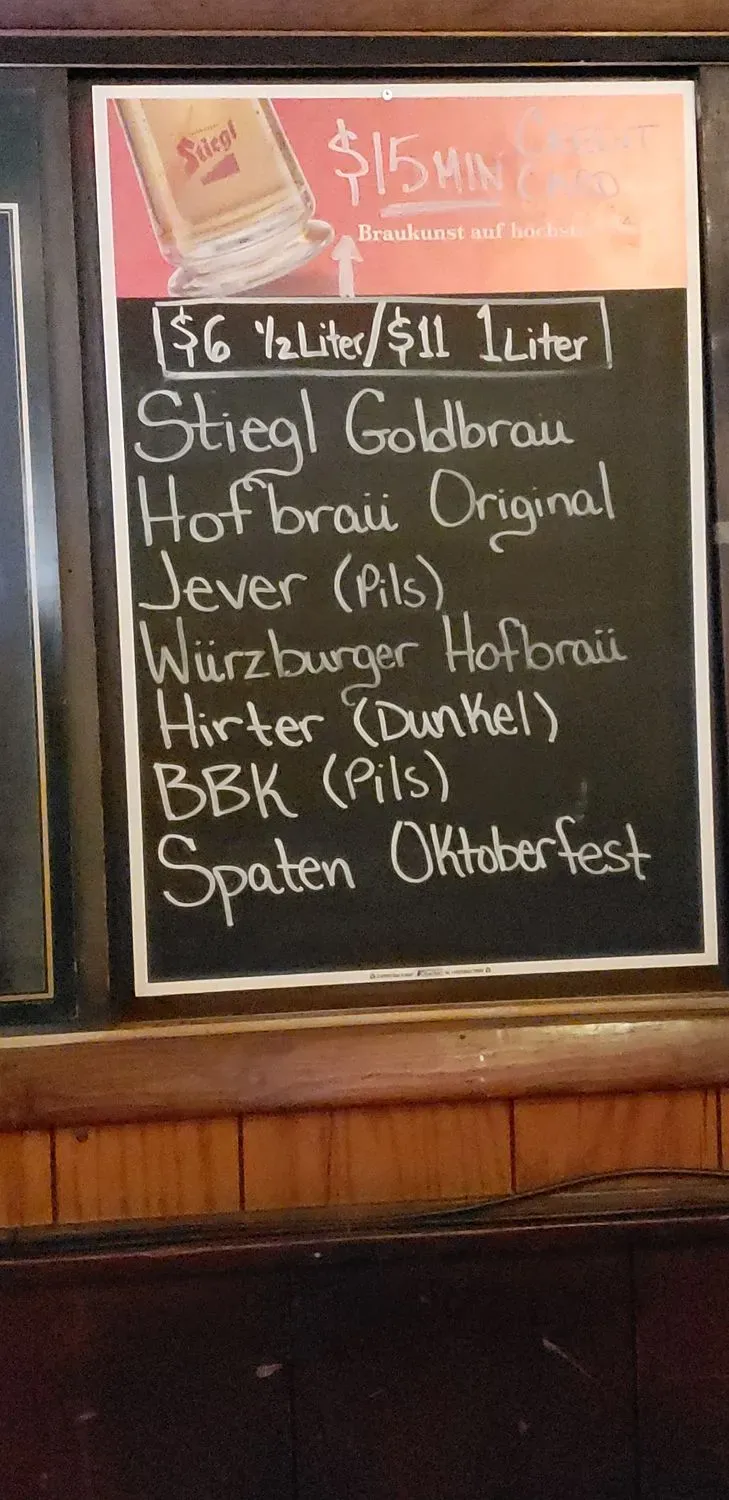 Stiegl
$15 MIN CREDIT CARD
Braukunst auf höchst
$6 ½ Liter/$11 1 Liter
Stiegl Goldbrau
Hofbraü Original
Jever (Pils)
Würzburger Hofbraü
Hirter (Dunkel)
BBK (Pils)
Spaten Oktoberfest